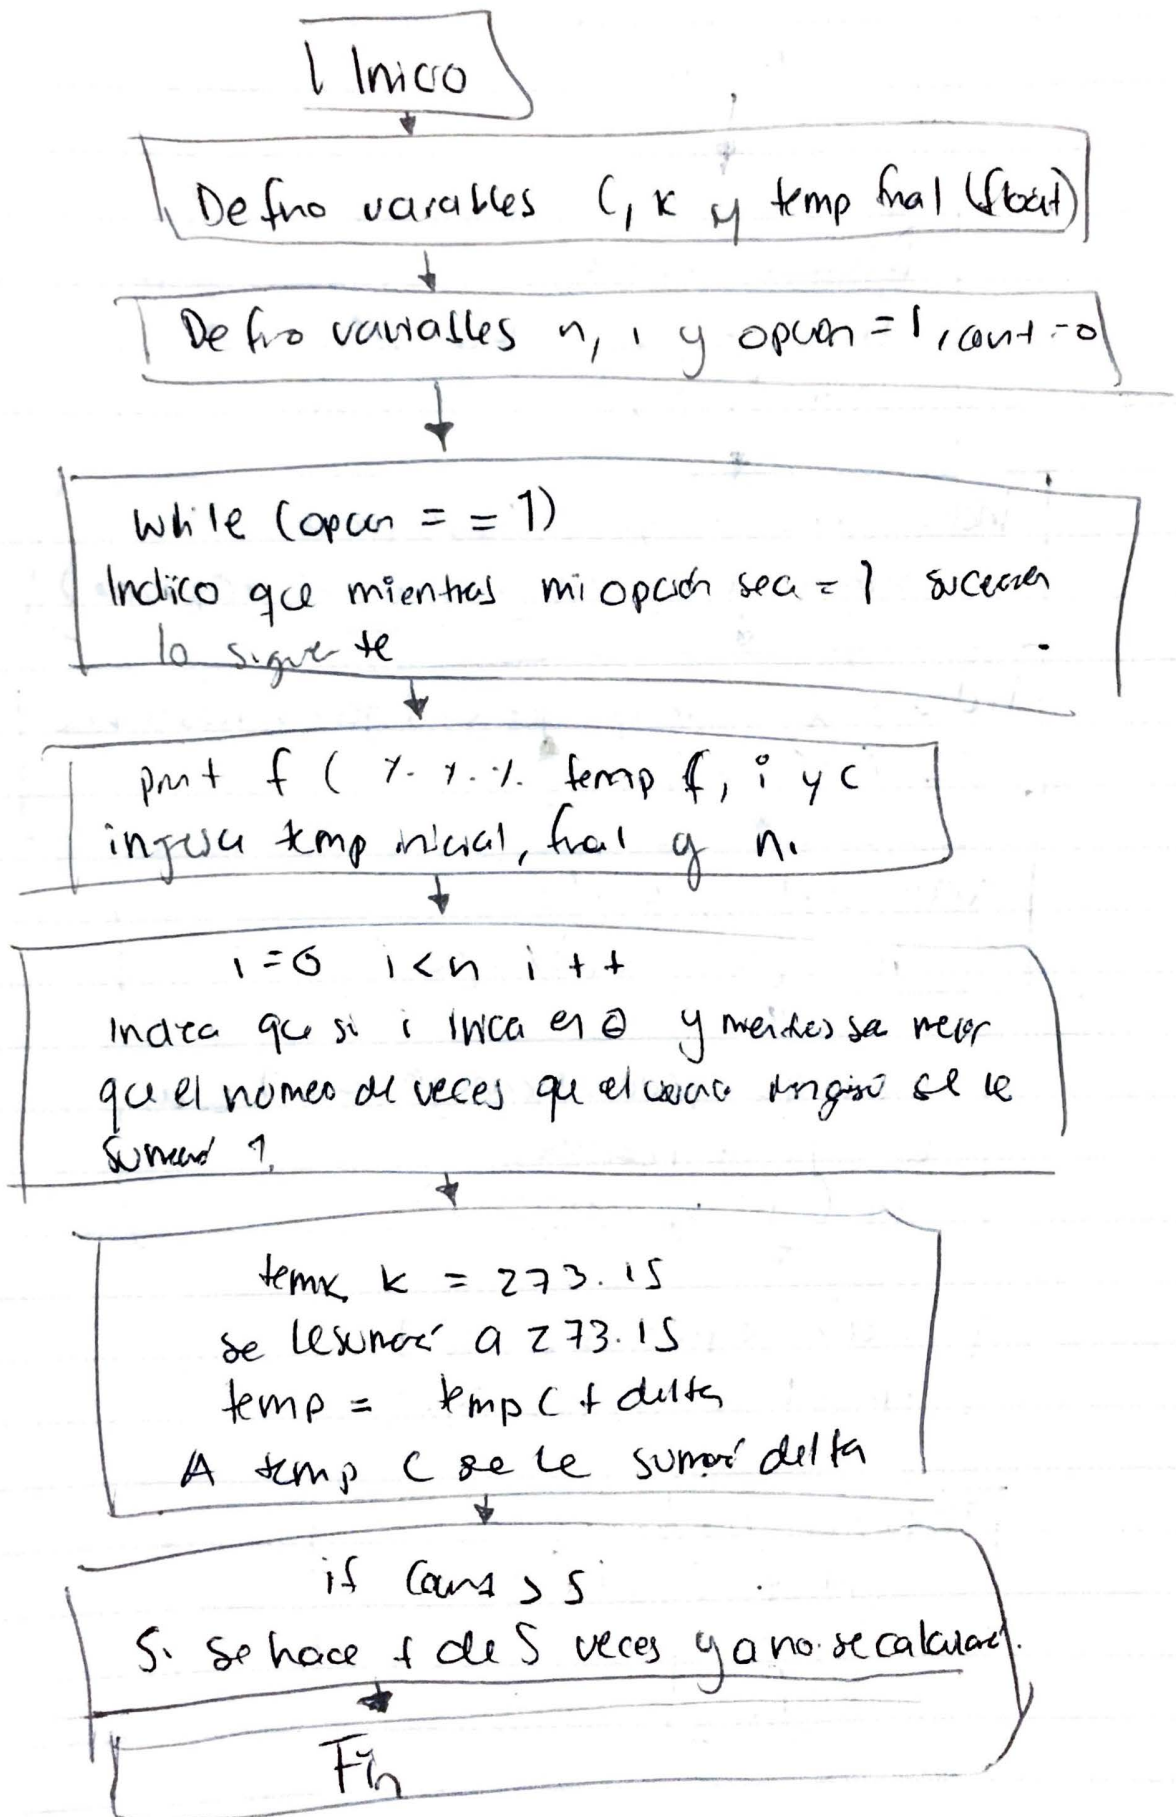 Inicio
Defino variables C, K y temp final (float)
Defino variables n, i y opcion = 1, cont = 0
while (opcion = = 1)
Indico que mientras mi opción sea = 1
lo siguiente
print f ( %. %. %. temp f, i y c
ingresa temp inicial, final y n.
i = 0 i < n i + +
Indica que si i inicia en 0 y mientras sea menor
que el número de veces que el se le
sumará 1.
k = 273.15
se le sumará a 273.15
temp = temp C + delta
A temp C se le sumará delta
if > 5
Si se hace + de 5 veces ya no se calculará.
Fin